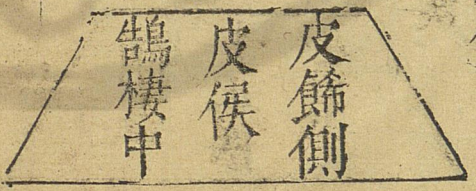 皮餙側
皮侯
鵠棲中